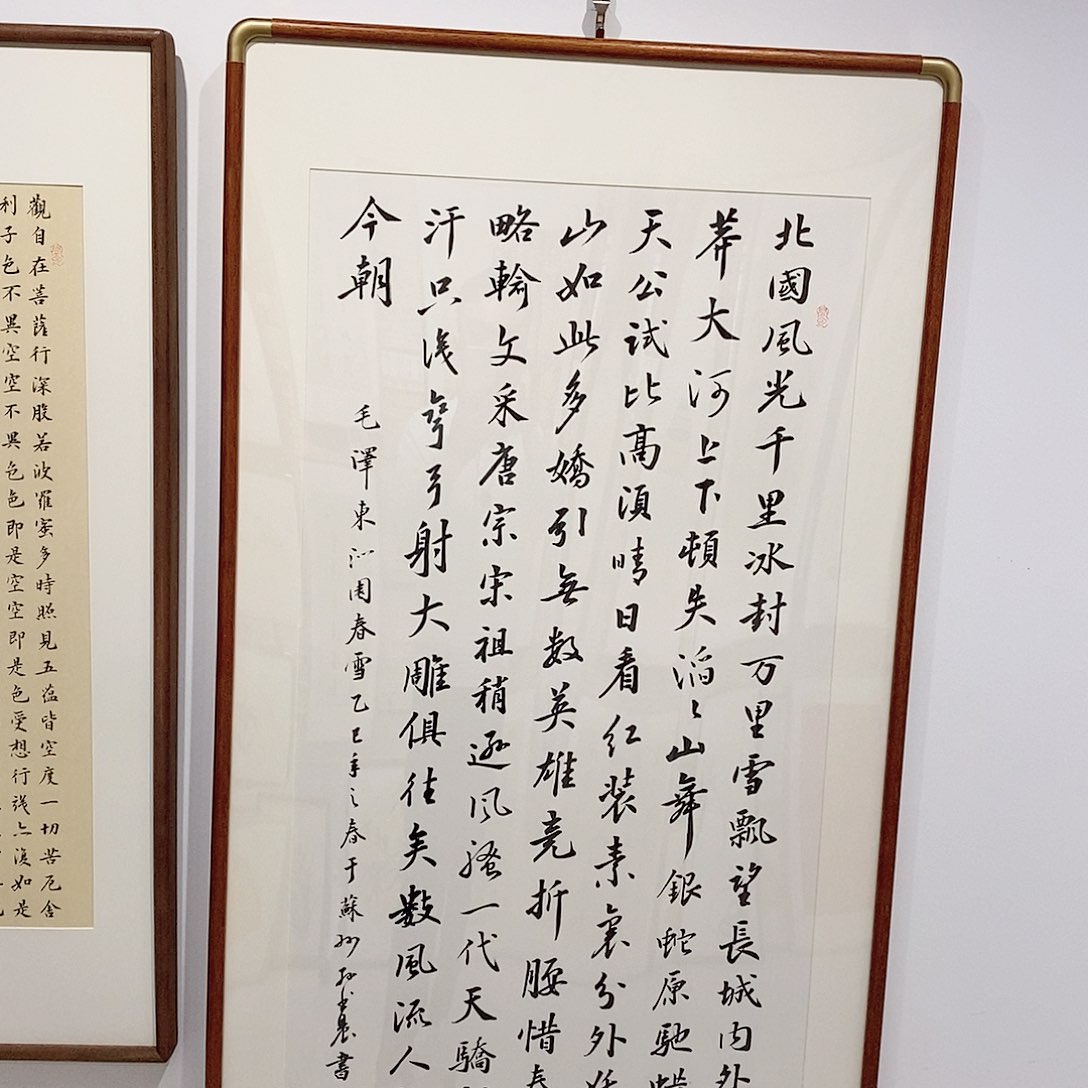 北國風光千里冰封万里雪飘望長城内外
莽大河上下頓失滔〻山舞銀蛇原馳蜡
天公試比高須晴日看红装素裹分外妖
山如此多嬌引無数英雄竞折腰惜秦
略輸文采唐宗宋祖稍逊风骚一代天驕
汗只识弯弓射大雕俱往矣數風流人
今朝
毛澤東沁园春雪乙巳年之春于蘇州孙書
觀自在菩薩行深般若波羅蜜多時照見五蕴皆空度一切苦厄舍
利子色不異空空不異色色即是空空即是色受想行識亦復如是